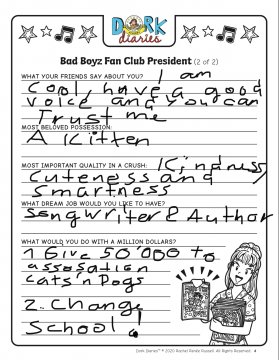 DORK
diaries
Bad Boyz Fan Club President (2 of 2)
WHAT YOUR FRIENDS SAY ABOUT YOU? I am
cool, have a good
voice and you can
Trust me
MOST BELOVED POSSESSION:
A kitten
MOST IMPORTANT QUALITY IN A CRUSH: Kindness
cuteness and
smartness
WHAT DREAM JOB WOULD YOU LIKE TO HAVE?
songwriter & Author
WHAT WOULD YOU DO WITH A MILLION DOLLARS?
1 Give 50'000 to
assosation
cats'n Dogs
2. Change
School!
Dork Diaries™ © 2020 Rachel Renée Russell. All Rights Reserved. 4